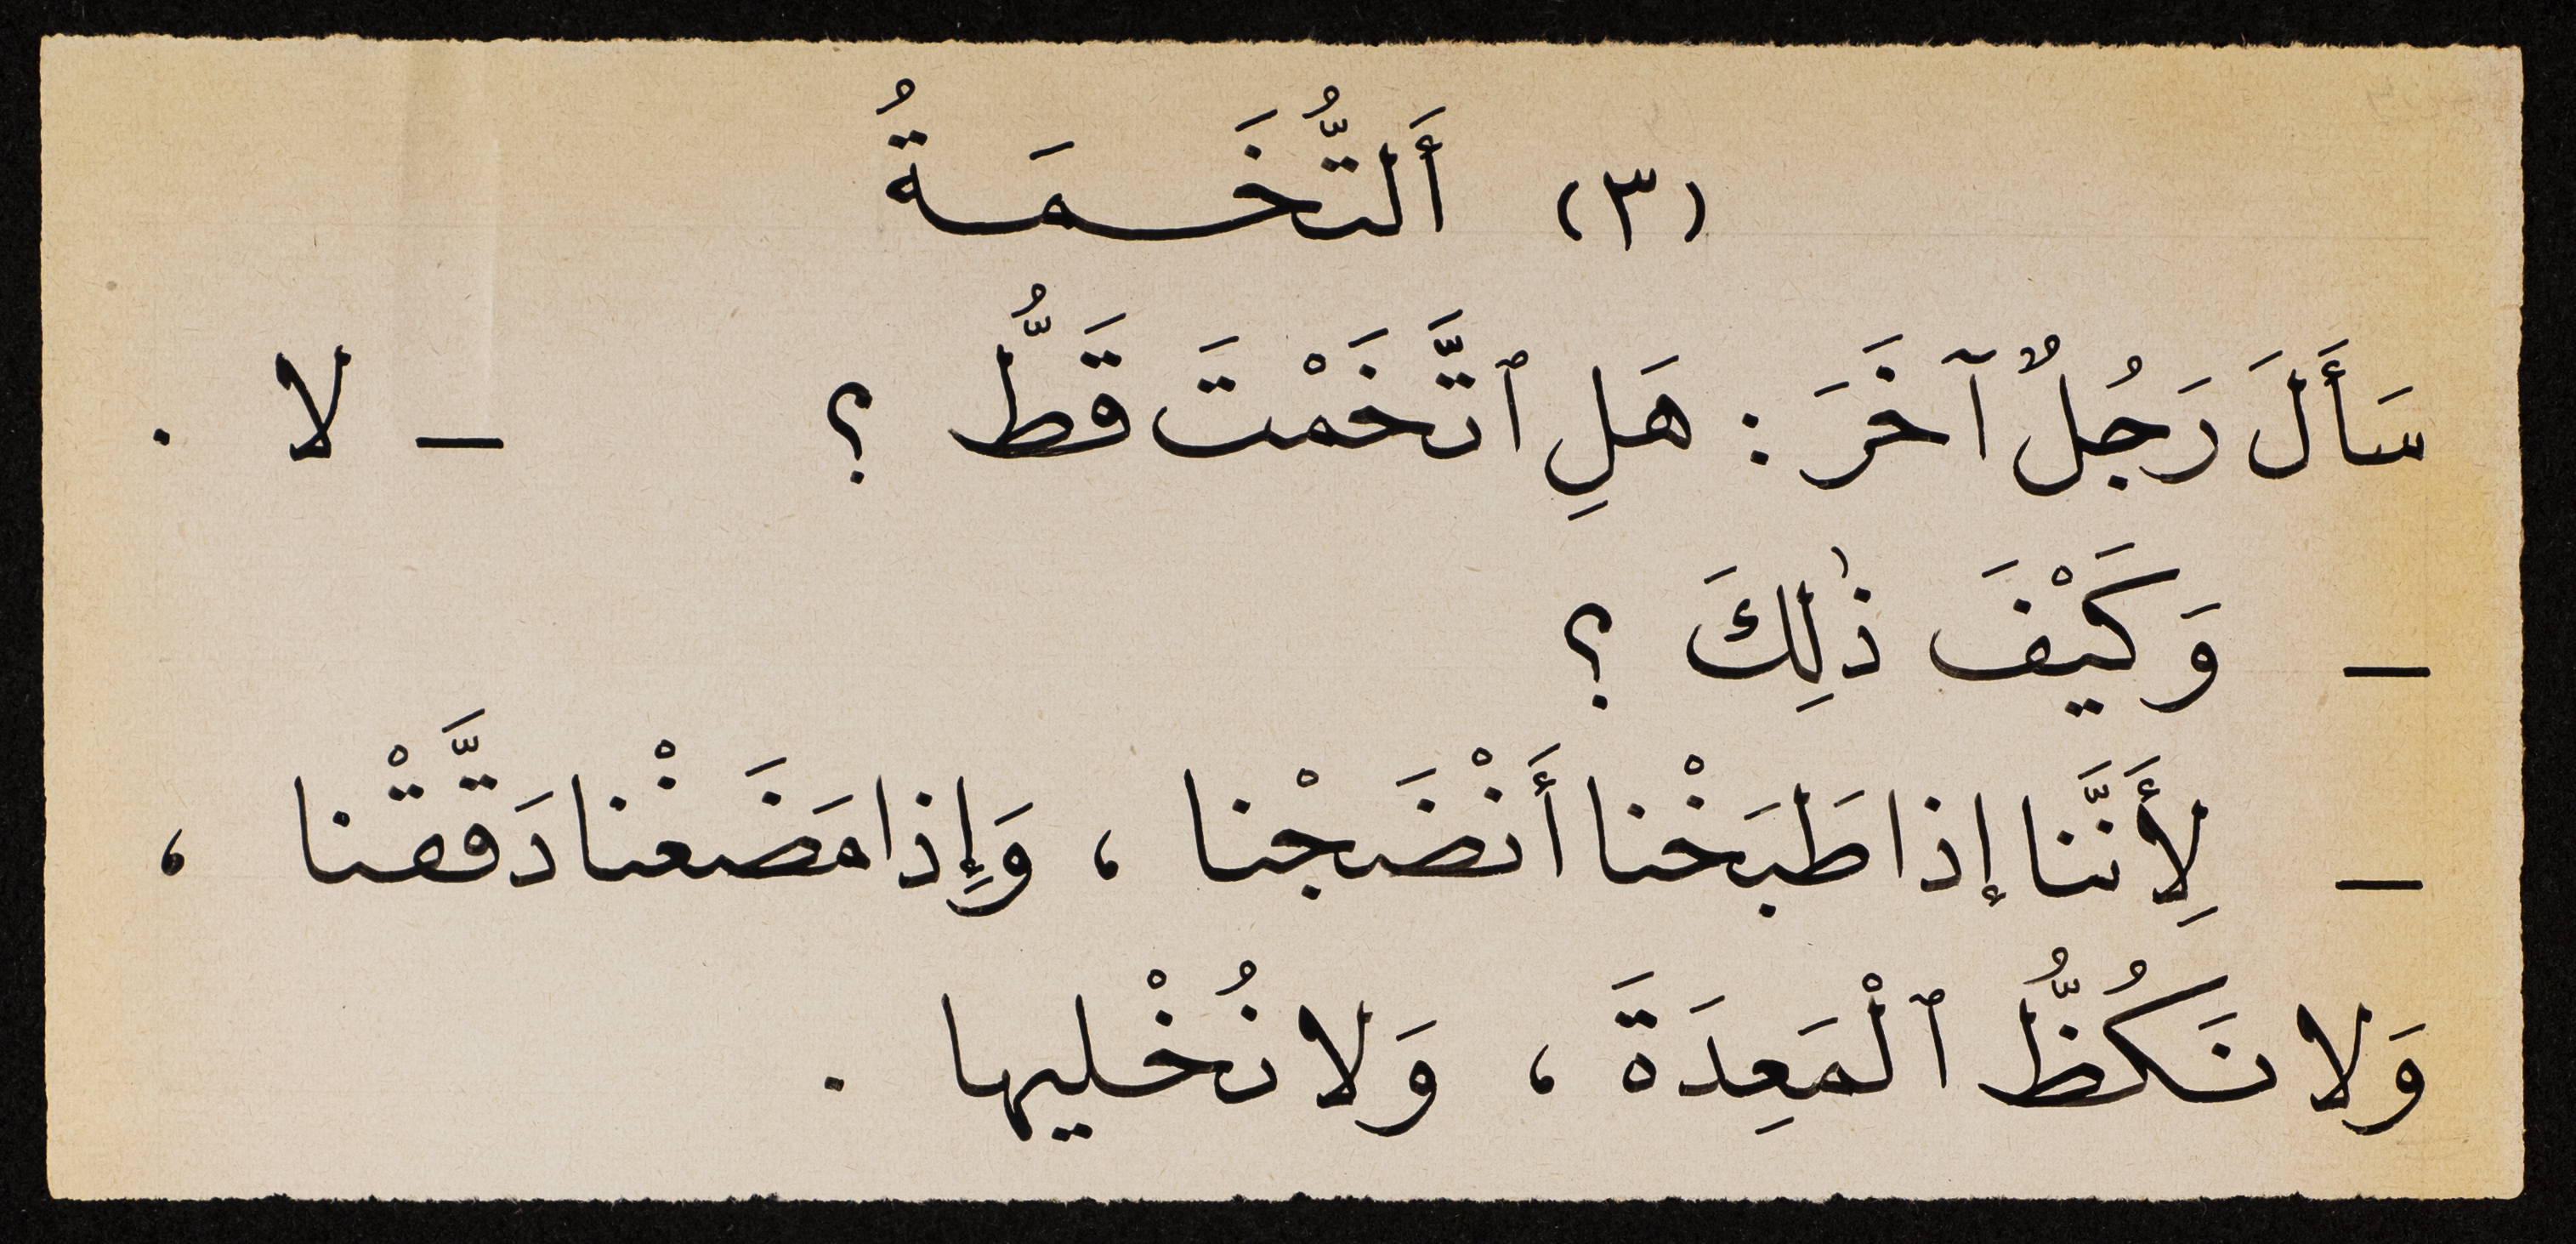 (٣) أَلتُّخَمَةُ
سَأَلَ رَجُلٌ آخَرَ : هَلِ ٱتَّخَمْتَ قَطُّ ؟ – لا .
– وَكَيْفَ ذٰلِكَ ؟
– لِأَنَّنا إذا طَبَخْنا أَنْضَجْنا ، وَإِذا مَضَغْنا دَقَّقْنا ،
وَلا نَكُظُّ ٱلْمَعِدَةَ ، وَلا نُخْليها .